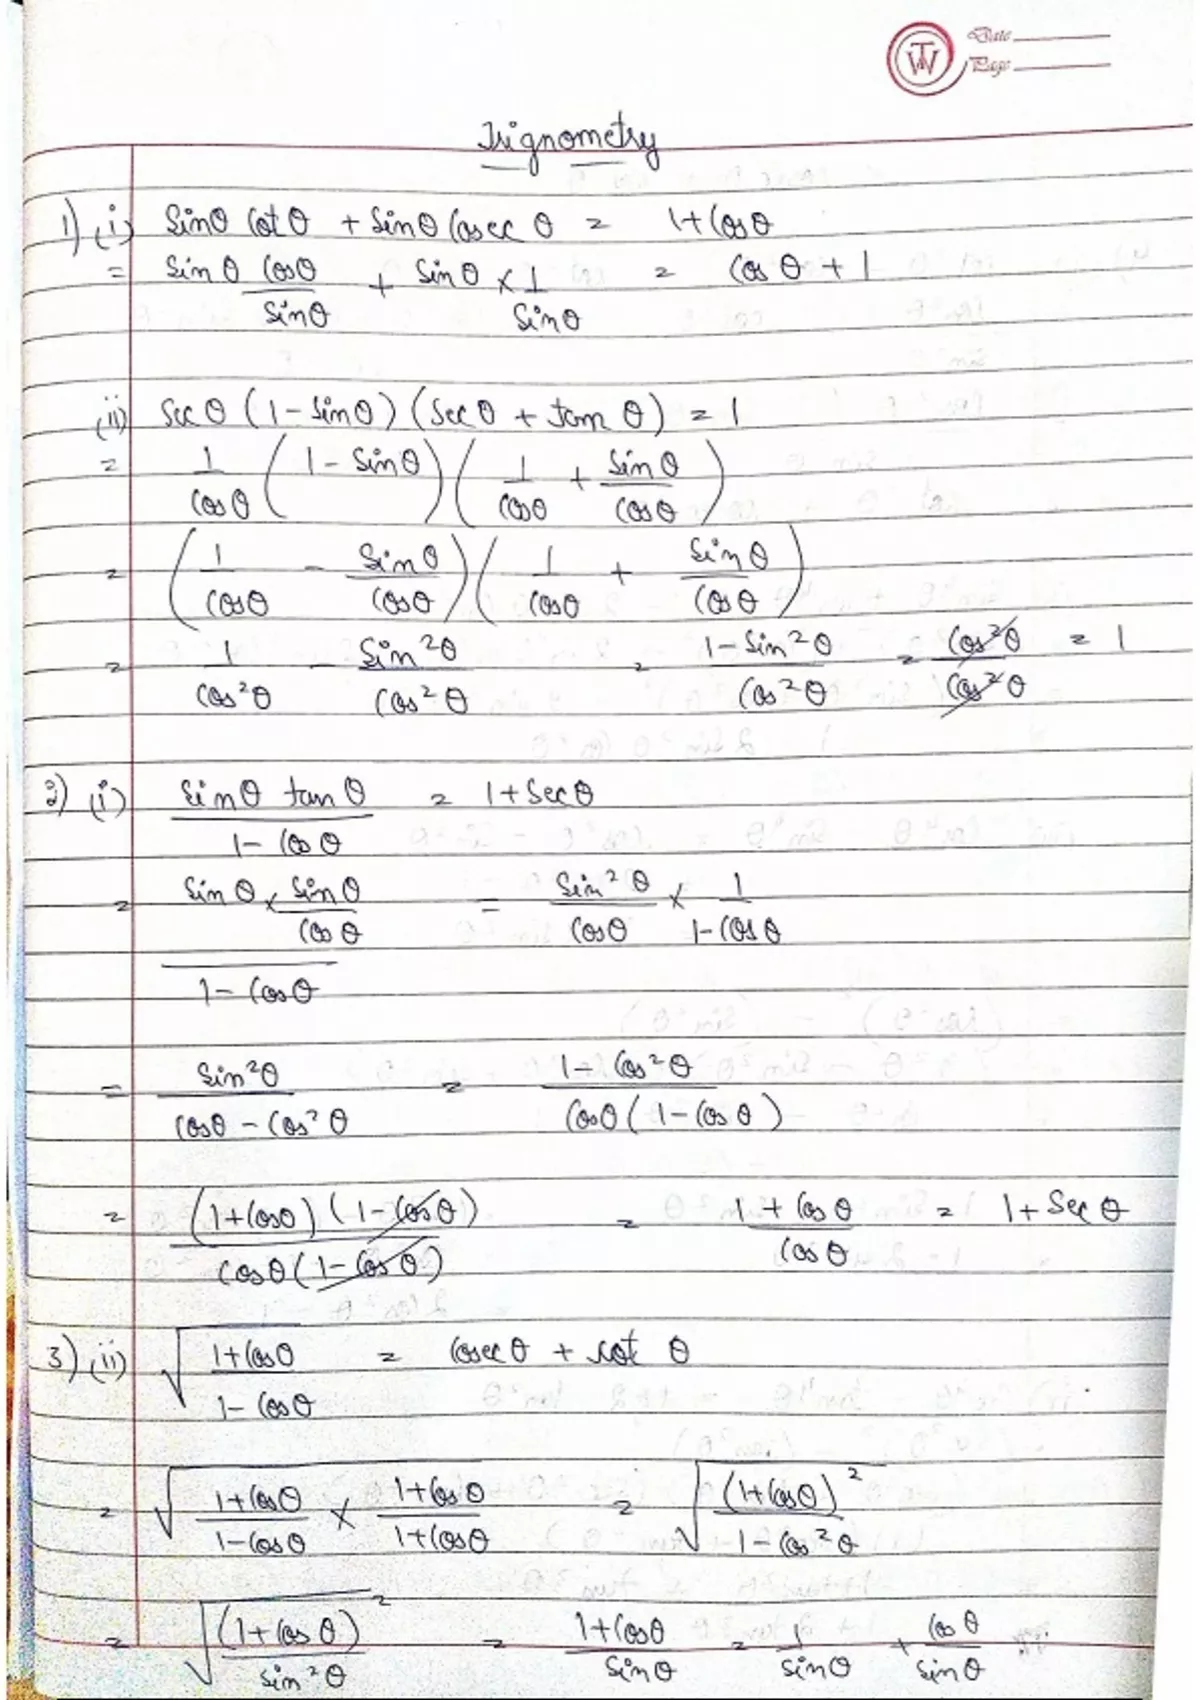 Date
Page
Trignometry
1) (i) Sinθ Cotθ + Sinθ Cosec θ = 1+Cosθ
= Sinθ Cosθ/Sinθ + Sinθ × 1/Sinθ = Cos θ + 1
(ii) Sec θ (1 - Sinθ) (Sec θ + tan θ) = 1
= 1/Cosθ (1 - Sinθ) (1/Cosθ + Sinθ/Cosθ)
= (1/Cosθ - Sinθ/Cosθ) (1/Cosθ + Sinθ/Cosθ)
= 1/Cos²θ - Sin²θ/Cos²θ = 1-Sin²θ/Cos²θ = Cos²θ/Cos²θ = 1
2) (i) Sinθ tanθ/1-Cosθ = 1+Secθ
= Sinθ × Sinθ/Cosθ/1-Cosθ = Sin²θ/Cosθ × 1/1-Cosθ
= Sin²θ/Cosθ-Cos²θ = 1-Cos²θ/Cosθ(1-Cosθ)
= (1+Cosθ)(1-Cosθ)/Cosθ(1-Cosθ) = 1+Cosθ/Cosθ = 1+Sec θ
3) (ii) √1+Cosθ/1-Cosθ = Cosecθ + cot θ
= √1+Cosθ/1-Cosθ × 1+Cosθ/1+Cosθ = √(1+Cosθ)²/1-Cos²θ
= √(1+Cosθ)²/Sin²θ = 1+Cosθ/Sinθ = 1/Sinθ + Cosθ/Sinθ